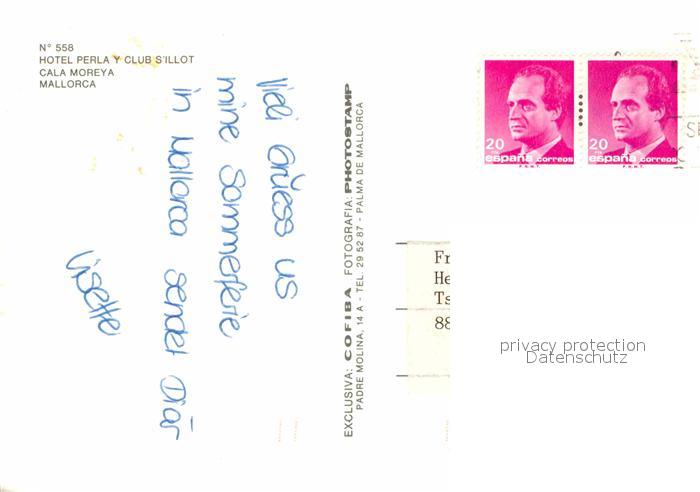 N° 558
HOTEL PERLA Y CLUB S'ILLOT
CALA MOREYA
MALLORCA
Vieli Grüess us
mine Sommerferie
in Mallorca sendet Diär
Lisette
EXCLUSIVA: COFIBA FOTOGRAFIA: PHOTOSTAMP
PADRE MOLINA, 14 A - TEL. 29 52 87 - PALMA DE MALLORCA
20
PTA
españa correos
F.N.M.T.
20
PTA
españa correos
F.N.M.T.
Fr
He
Ts
88
privacy protection
Datenschutz